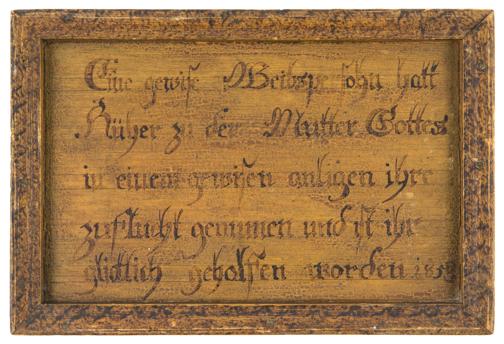 Eine gewise Weibspersohn hatt
Hüher zu der Mutter Gottes
in einem gewisen anligen ihre
zuflucht genumen und ist ihr
glücklich geholfen worden